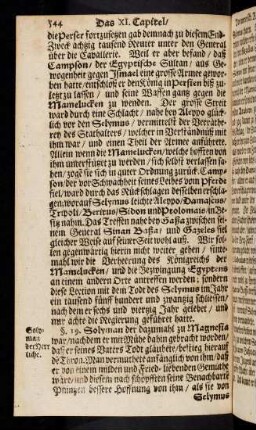 544 Das XI. Capitel/
die Perser fortzusetzen gab dennnach zu diesem End-
Zweck achtzig tausend Reuter unter den General
über die Cavallerie. Weil er aber befand/ daß
Campson/ der Egyptische Sultan/ aus Ge-
wogenheit gegen Ismael eine grosse Armee gewor-
ben hatte/ entschloß er den König in Persien biß zu-
letzt zu lassen/ und seine Waffen gantz gegen die
Mamelucken zu wenden. Der grosse Streit
ward durch eine Schlacht/ nahe bey Aleppo glück-
lich vor den Selymus/ vermittelst der Verräthe-
rey des Stathalters/ welcher in Verständnüß mit
ihm war/ und einen Theil der Armee anführete.
Allein wenn die Mamelucken/ welche hofften von
ihm unterstützet zu werden/ sich selbst verlassen sa-
hen/ zoge sie sich in guter Ordnung zurück. Camp-
son/ der vor Schwachheit seines Leibes vom Pferde
fiel/ ward durch das Niderschlagen desselben erschla-
gen/ worauf Selymus leichte Aleppo/ Damascus/
Tripoli/ Beritus/ Sidon und Ptolomais in Be-
sitz nahm. Das Treffen nahe bey Gaßa zwischen sei-
nem General Sinan Baßa/ und Gazeles fiel
gleicher Weise auf seiner Seit wohl auß. Wir sol-
len gegenwärtig hierin nicht weiter gehen/ sinte-
mahl wir die Verheerung des Königreichs der
Mamelucken/ und die Bezwingung Egyptens
an einem andern Orte antreffen werden; sondern
diese Section mit dem Todt des Selymus im Jahr
ein tausend fünff hundert und zwantzig schliessen/
nach dem er sechs und viertzig Jahr gelebet/ und
nur achte die Regierung geführet hatte.
Soly-
man
der Herr
liche.
§. 19. Solyman der dazumahl zu Magnesia
war/ nachdem er mit Mühe dahin gebracht worden/
daß er seines Vaters Todt gläubete/ bestieg hierauf
de Thron. Man vermuthete anfänglich von ihm/ daß
er von einem milden und Fried-liebenden Gemüthe
wäre/ und diesem nach schöpfften seine Benachbarte
Printzen bessere Hoffnung von ihm/ als sie von
Selymus